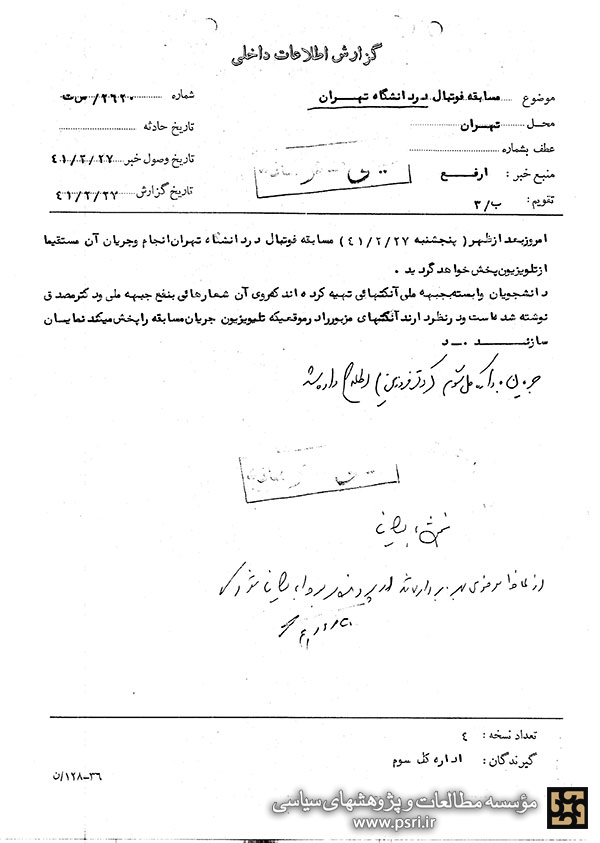 گزارش اطلاعات داخلی
موضوع مسابقه فوتبال در دانشگاه تهران
شماره ۲۶۲۰/ س ت
محل تهران
تاریخ حادثه
عطف بشماره
تاریخ وصول خبر ۴۱/۲/۲۷
منبع خبر : ارفع
تاریخ گزارش ۴۱/۲/۲۷
تقویم : ب/۳
امروز بعد از ظهر ( پنجشنبه ۴۱/۲/۲۷) مسابقه فوتبال در دانشگاه تهران انجام و جریان آن مستقیما
از تلویزیون پخش خواهد گردید .
دانشجویان وابسته بجبهه ملی آنکتهائی تهیه کرده اند که روی آن شعارهائی بنفع جبهه ملی و دکتر مصدق
نوشته شده است و در نظر دارند آنکتهای مزبور را در موقعیکه تلیویزیون جریان مسابقه را پخش میکند نمایان
سازند
اطلاع داده شد
بایگانی
تعداد نسخه : ٤
گیرندگان : اداره کل سوم
۳۶-۱۲۸/ن
مؤسسه مطالعات و پژوهشهای سیاسی
www.psri.ir